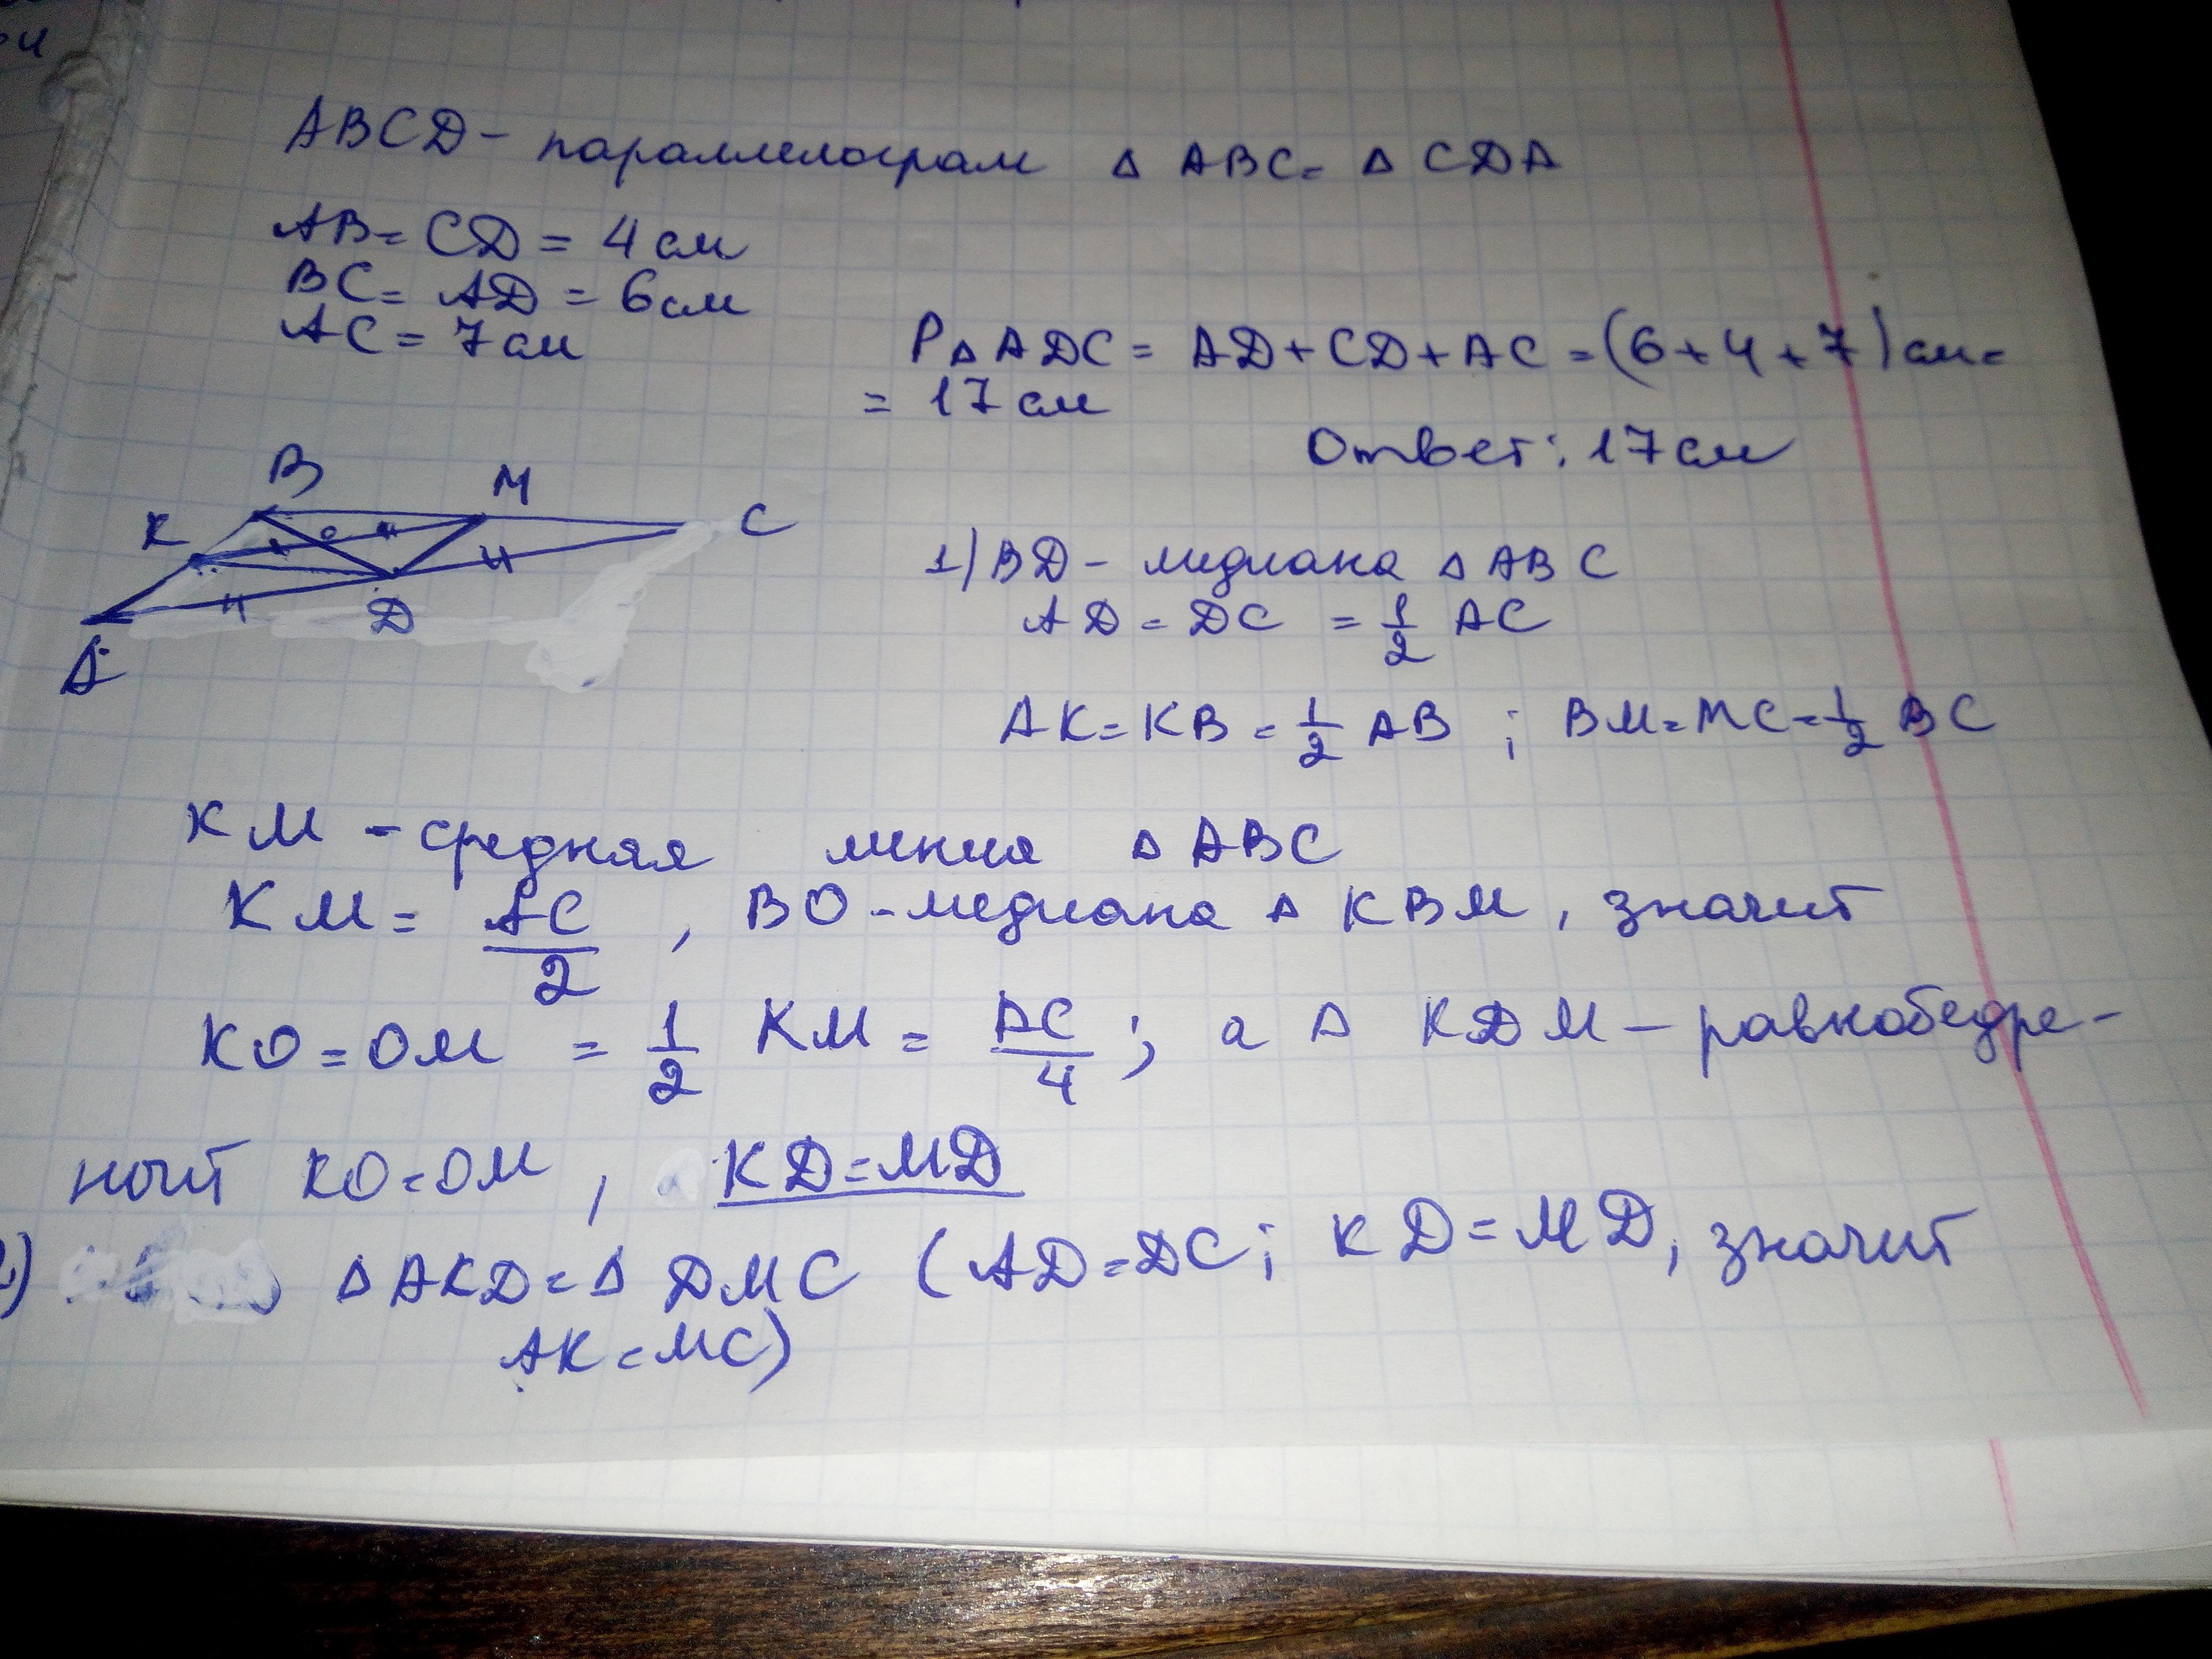 ABCD - параллелограм △ ABC = △ CDA
AB = CD = 4 см
BC = AD = 6 см
AC = 7 см
P△ADC = AD + CD + AC = (6 + 4 + 7) см =
= 17 см
Ответ: 17 см
B M
K C
о
D
A
1) BD - медиана △ ABC
AD = DC = 1/2 AC
AK = KB = 1/2 AB ; BM = MC = 1/2 BC
KM - средняя линия △ ABC
KM = AC/2 , BO - медиана △ KBM, значит
KO = OM = 1/2 KM = AC/4 ; а △ KDM - равнобедре-
ный KO = OM , KD = MD
) △ AKD = △ DMC (AD = DC; KD = MD, значит
AK = MC)